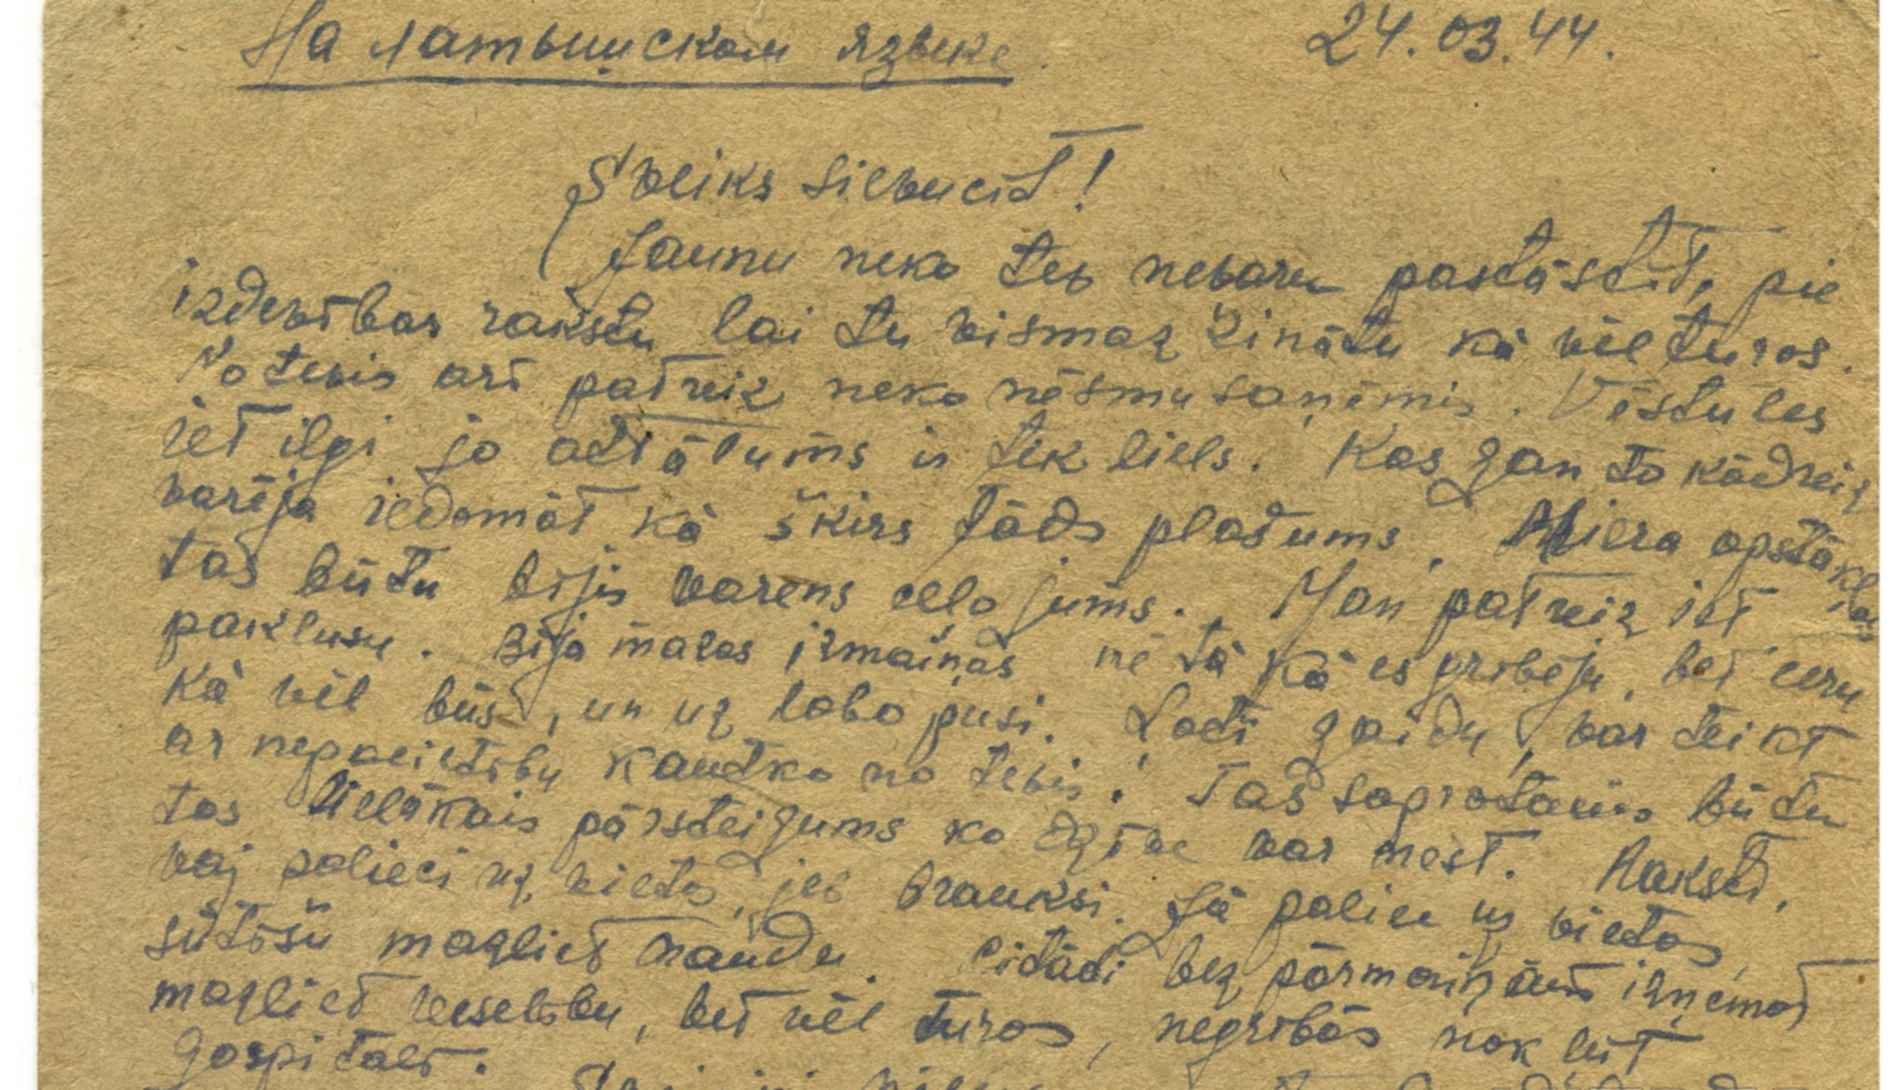 На латышском языке 24.03.44.
Sveiks Silvucīt!
Jaunu neko tev nevaru pastāstīt, pie
izdevības rakstu lai tu vismaz zinātu kā vēl turos.
No tevis arī patreiz neko nēsmu saņēmis. Vēstules
iet ilgi jo attālums ir tik liels. Kas gan to kādreiz
varēja iedomāt kā šķirs tāds plašums. Miera apstākļos
tas būtu bijis varens ceļojums. Man patreiz iet
paklusu. Bija mazas izmaiņas nē tā kā es gribēju, bet ceru
kā vēl būs, un uz labo pusi. Ļoti gaidu, var teikt
ar nepacietību kautko no tevis! Tas saprotams būtu
tas lielākais pārsteigums ko dzīve var nest. Raksti,
vaj paliec uz vietas, jeb brauksi. Ja paliec uz vietas,
sūtīšu mazliet naudu. Citādi bez pārmaiņām izņemot
mazliet veselību, bet vēl turos, negribās nokļūt
gospitalī.